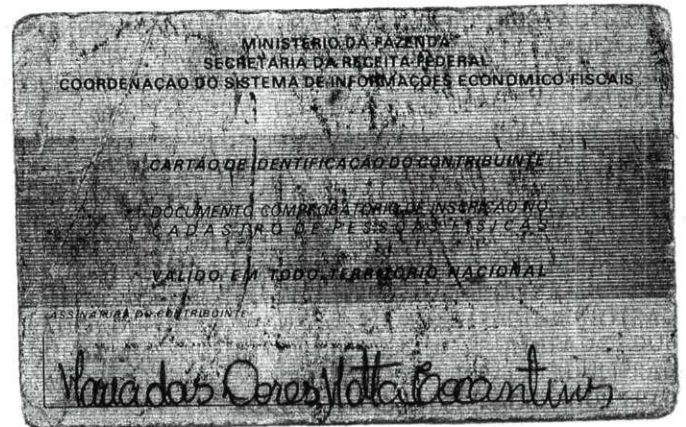 MINISTÉRIO DA FAZENDA
SECRETARIA DA RECEITA FEDERAL
COORDENAÇÃO DO SISTEMA DE INFORMAÇÕES ECONÔMICO FISCAIS
CARTÃO DE IDENTIFICAÇÃO DO CONTRIBUINTE
DOCUMENTO COMPROBATÓRIO DE INSCRIÇÃO NO
CADASTRO DE PESSOAS FÍSICAS
VÁLIDO EM TODO TERRITÓRIO NACIONAL
ASSINATURA DO CONTRIBUINTE
Maria das Dores Motta